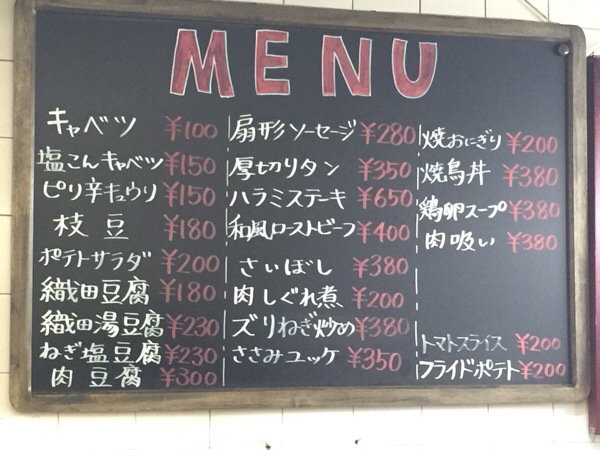 MENU
キャベツ ¥100
塩こんキャベツ ¥150
ピリ辛キュウリ ¥150
枝豆 ¥180
ポテトサラダ ¥200
織田豆腐 ¥180
織田湯豆腐 ¥230
ねぎ塩豆腐 ¥230
肉豆腐 ¥300
扇形ソーセージ ¥280
厚切りタン ¥350
ハラミステーキ ¥650
和風ローストビーフ ¥400
さいぼし ¥380
肉しぐれ煮 ¥200
ズリねぎ炒め ¥380
ささみユッケ ¥350
焼おにぎり ¥200
焼鳥丼 ¥380
鶏卵スープ ¥380
肉吸い ¥380
トマトスライス ¥200
フライドポテト ¥200